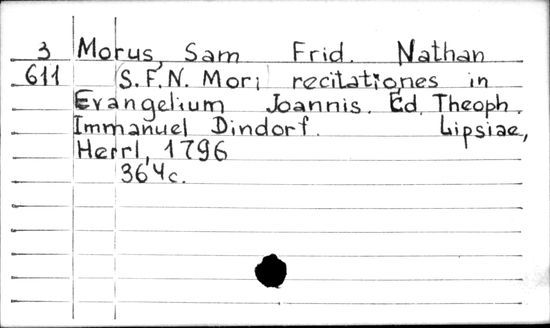 3 Morus, Sam Frid. Nathan
611 S.F.N. Mori recitationes in
Evangelium Joannis. Ed. Theoph.
Immanuel Dindorf. Lipsiae,
Herrl, 1796
364c.